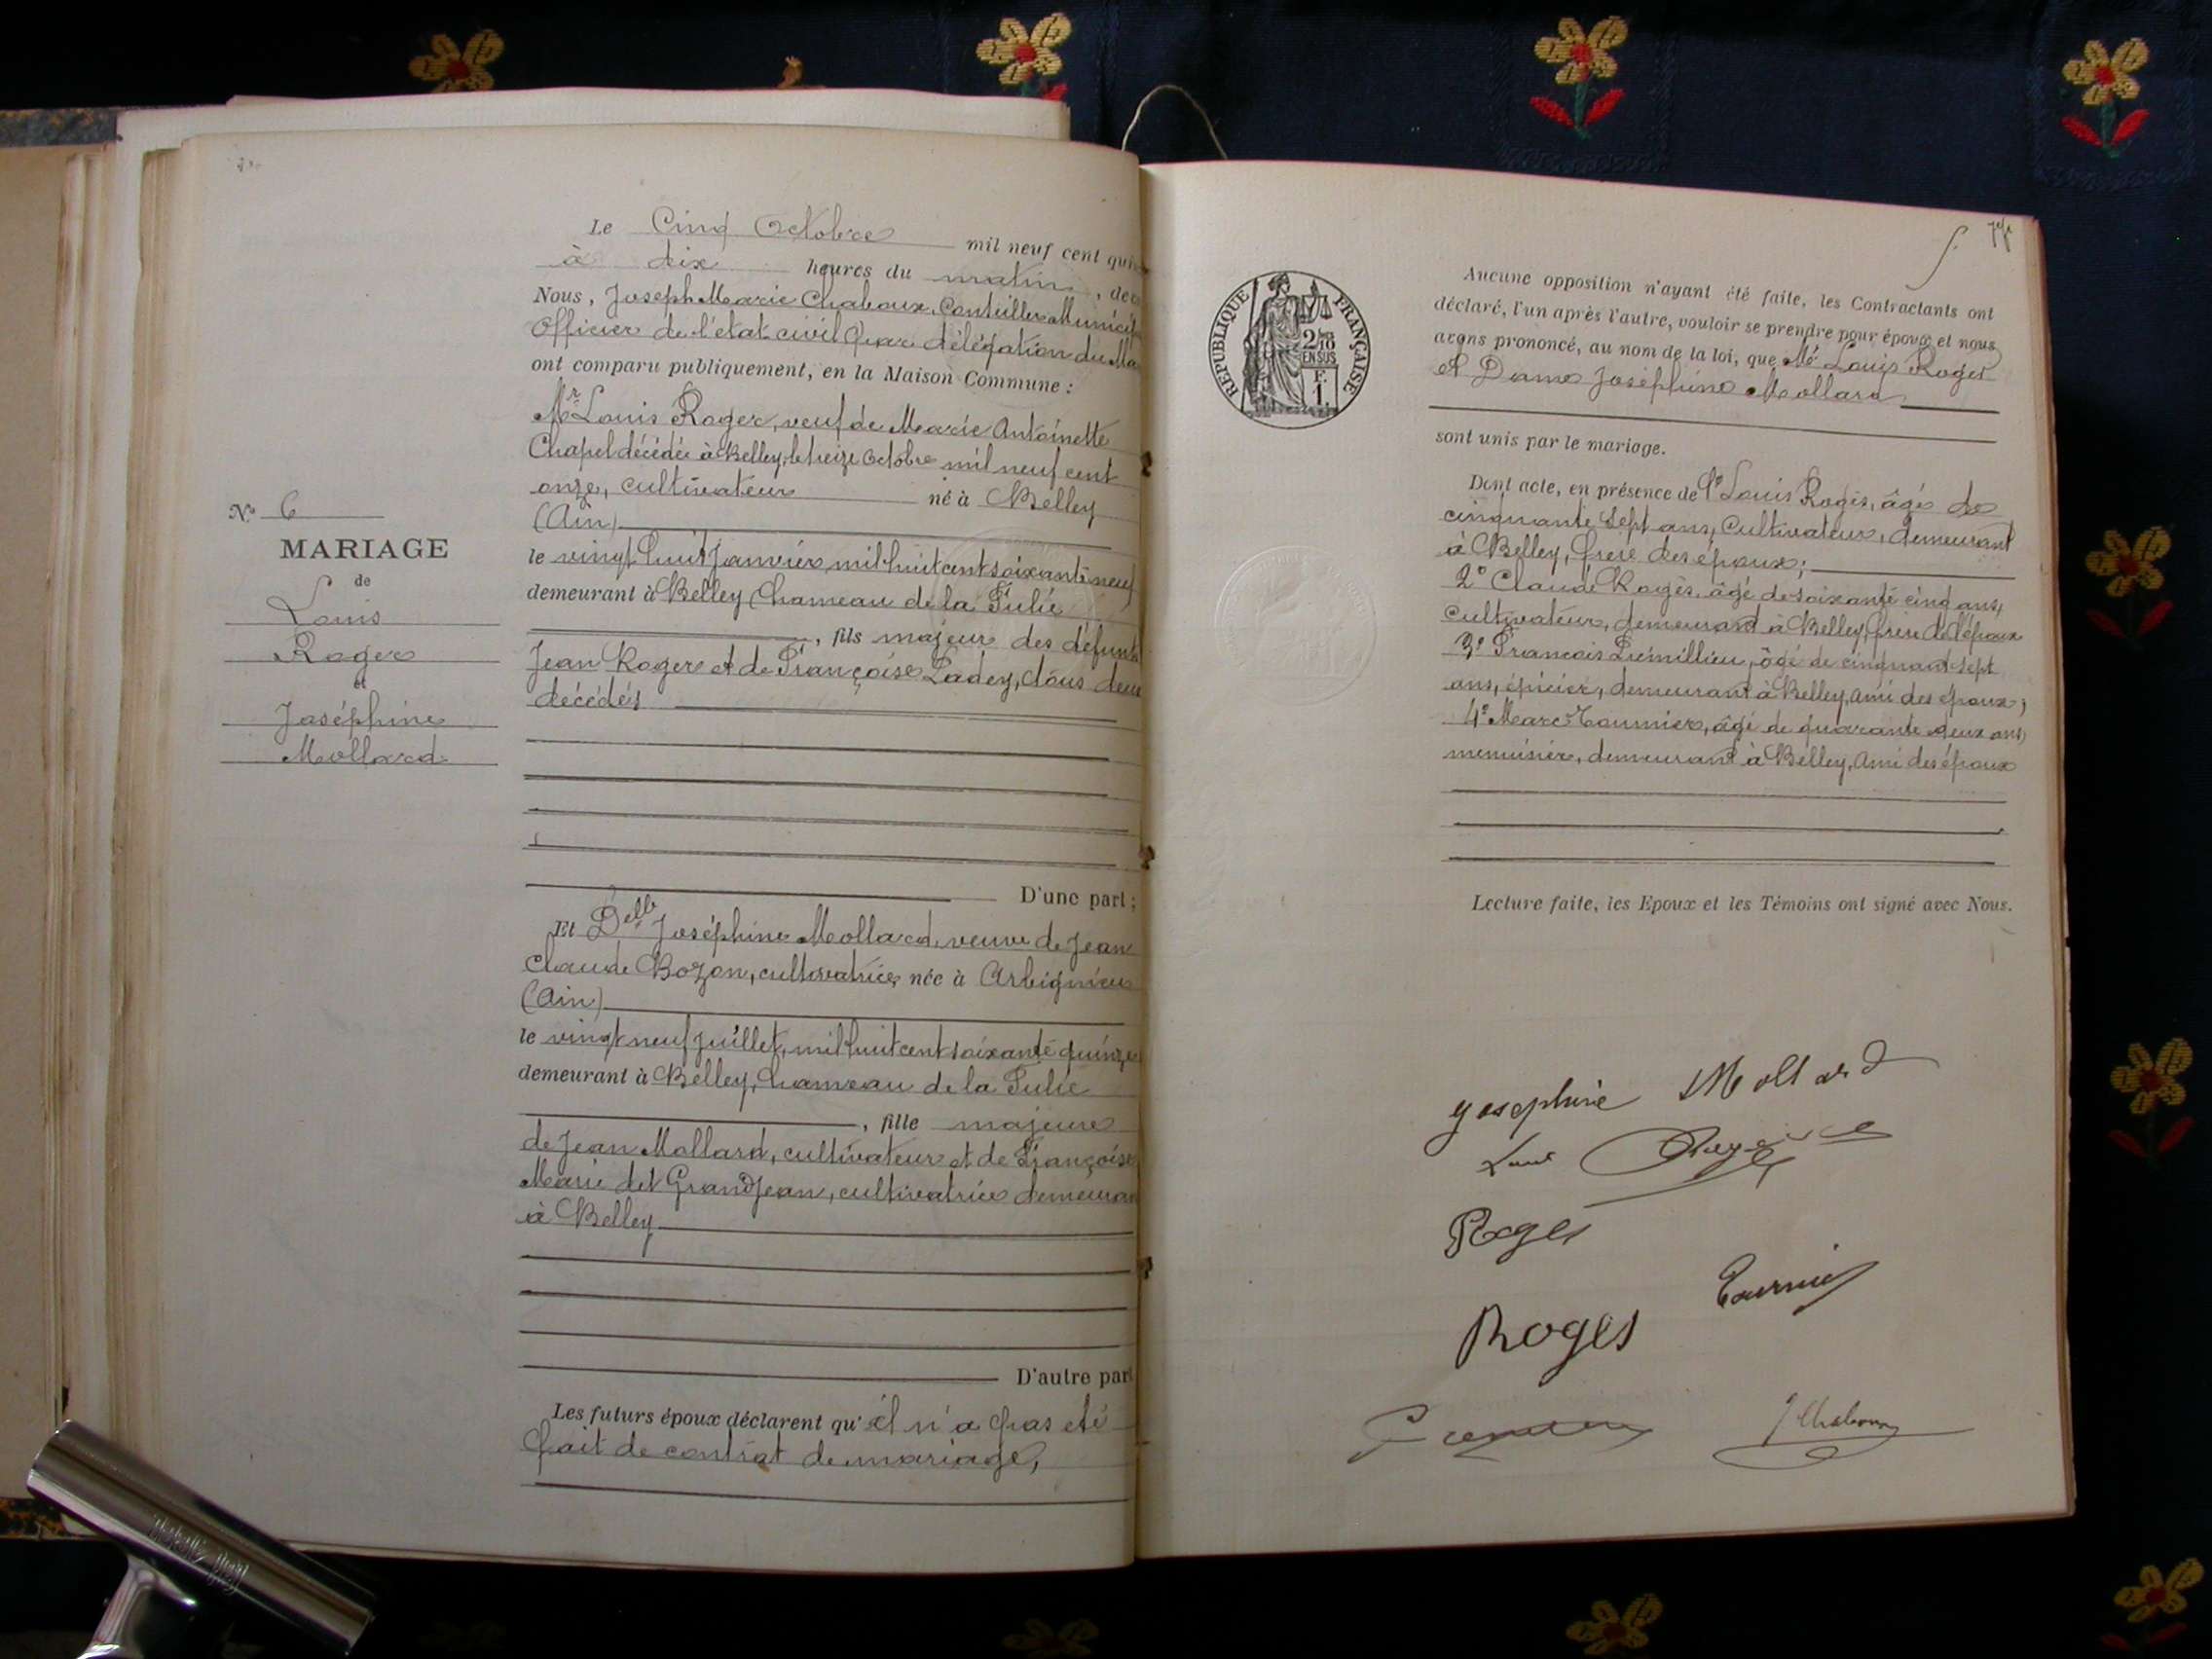 Le Cinq Octobre mil neuf cent
à dix heures du matin,
Nous, Joseph Marie Chaboux, Conseiller
Officier de l'état civil par délégation du
ont comparu publiquement, en la Maison Commune :
Mr Louis Roger, veuf de Marie Antoinette
Chapel décédée à Belley, le treize Octobre mil neuf cent
onze, cultivateur né à Belley
(Ain)
le vingt huit Janvier mil huit cent soixante neuf
demeurant à Belley, hameau de la
, fils majeur des défunts
Jean Roger et de Françoise Ladey, tous deux
décédés
D'une part ;
Et Delle Joséphine Mollard, veuve de Jean
Claude Bozon, cultivatrice, née à Arbignieu
(Ain)
le vingt neuf Juillet, mil huit cent soixante quinze
demeurant à Belley, hameau de la
, fille majeure
de Jean Mollard, cultivateur et de Françoise
Marie dit Grandjean, cultivatrice
à Belley
D'autre part
Les futurs époux déclarent qu'il n'a pas eté
fait de contrat de mariage,
N° 6
MARIAGE
de
Louis
Roger
et
Joséphine
Mollard
RÉPUBLIQUE FRANÇAISE
2/10
EN SUS
F.
1.
Aucune opposition n'ayant été faite, les Contractants ont
déclaré, l'un après l'autre, vouloir se prendre pour époux et nous
avons prononcé, au nom de la loi, que Mr Louis Roger
et Dame Joséphine Mollard
sont unis par le mariage.
Dont acte, en présence de 1° Louis Roger, âgé de
cinquante sept ans, Cultivateur, demeurant
à Belley, frère des époux ;
2° Claude Roger, âgé de soixante cinq ans,
cultivateur, demeurant à Belley, frère de l'époux
3° Francois Prémillieu, âgé de cinquant sept
ans, épicier, demeurant à Belley, ami des époux ;
4° Marc Tournier, âgé de quarante deux ans,
menuisier, demeurant à Belley, ami des époux
Lecture faite, les Epoux et les Témoins ont signé avec Nous.
Josephine Mollard
Roger
Roger
Tournier
Roger
J Chaboux